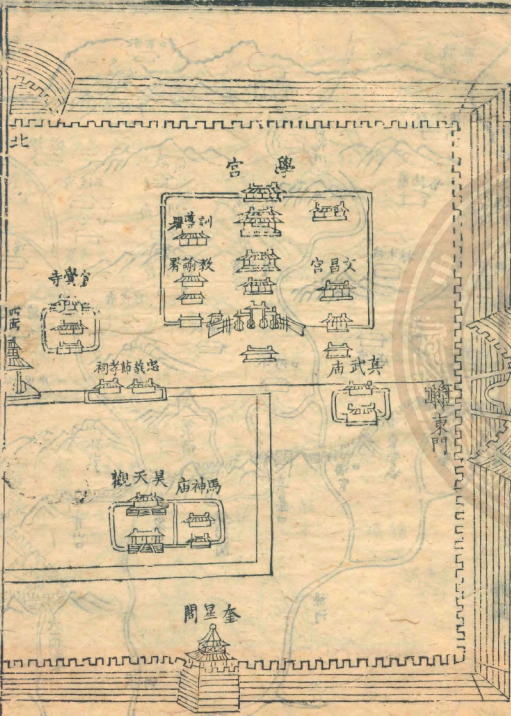 北
學宮
訓導署
教諭署
文昌宮
寺
忠義節孝祠
真武庙
東門
昊天觀
馬神庙
奎星閣